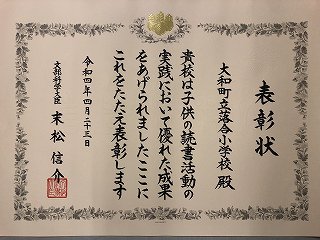 表彰状
大和町立落合小学校 殿
貴校は子供の読書活動の
実践において優れた成果
をあげられましたここに
これをたたえ表彰します
令和四年四月二十三日
文部科学大臣 末松信介